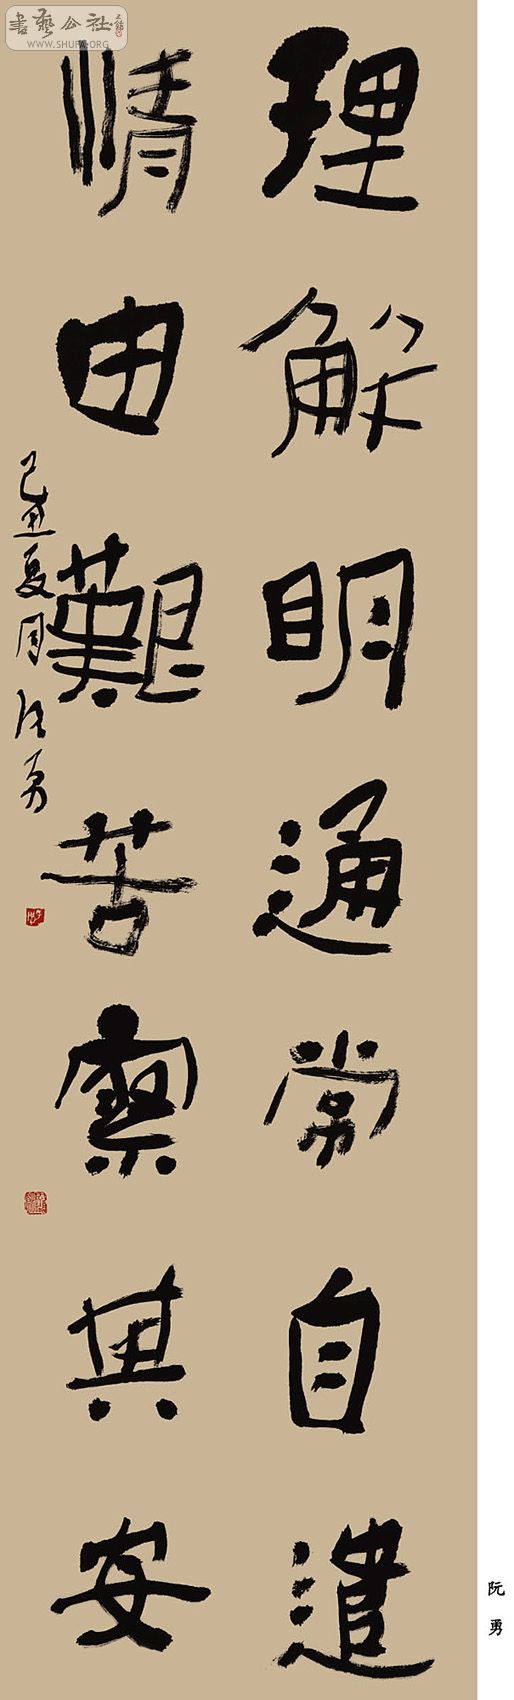 理解明通常自遣
情由艱苦察其安
己丑夏月阮勇
阮勇
書藝公社
WWW.SHUFA.ORG